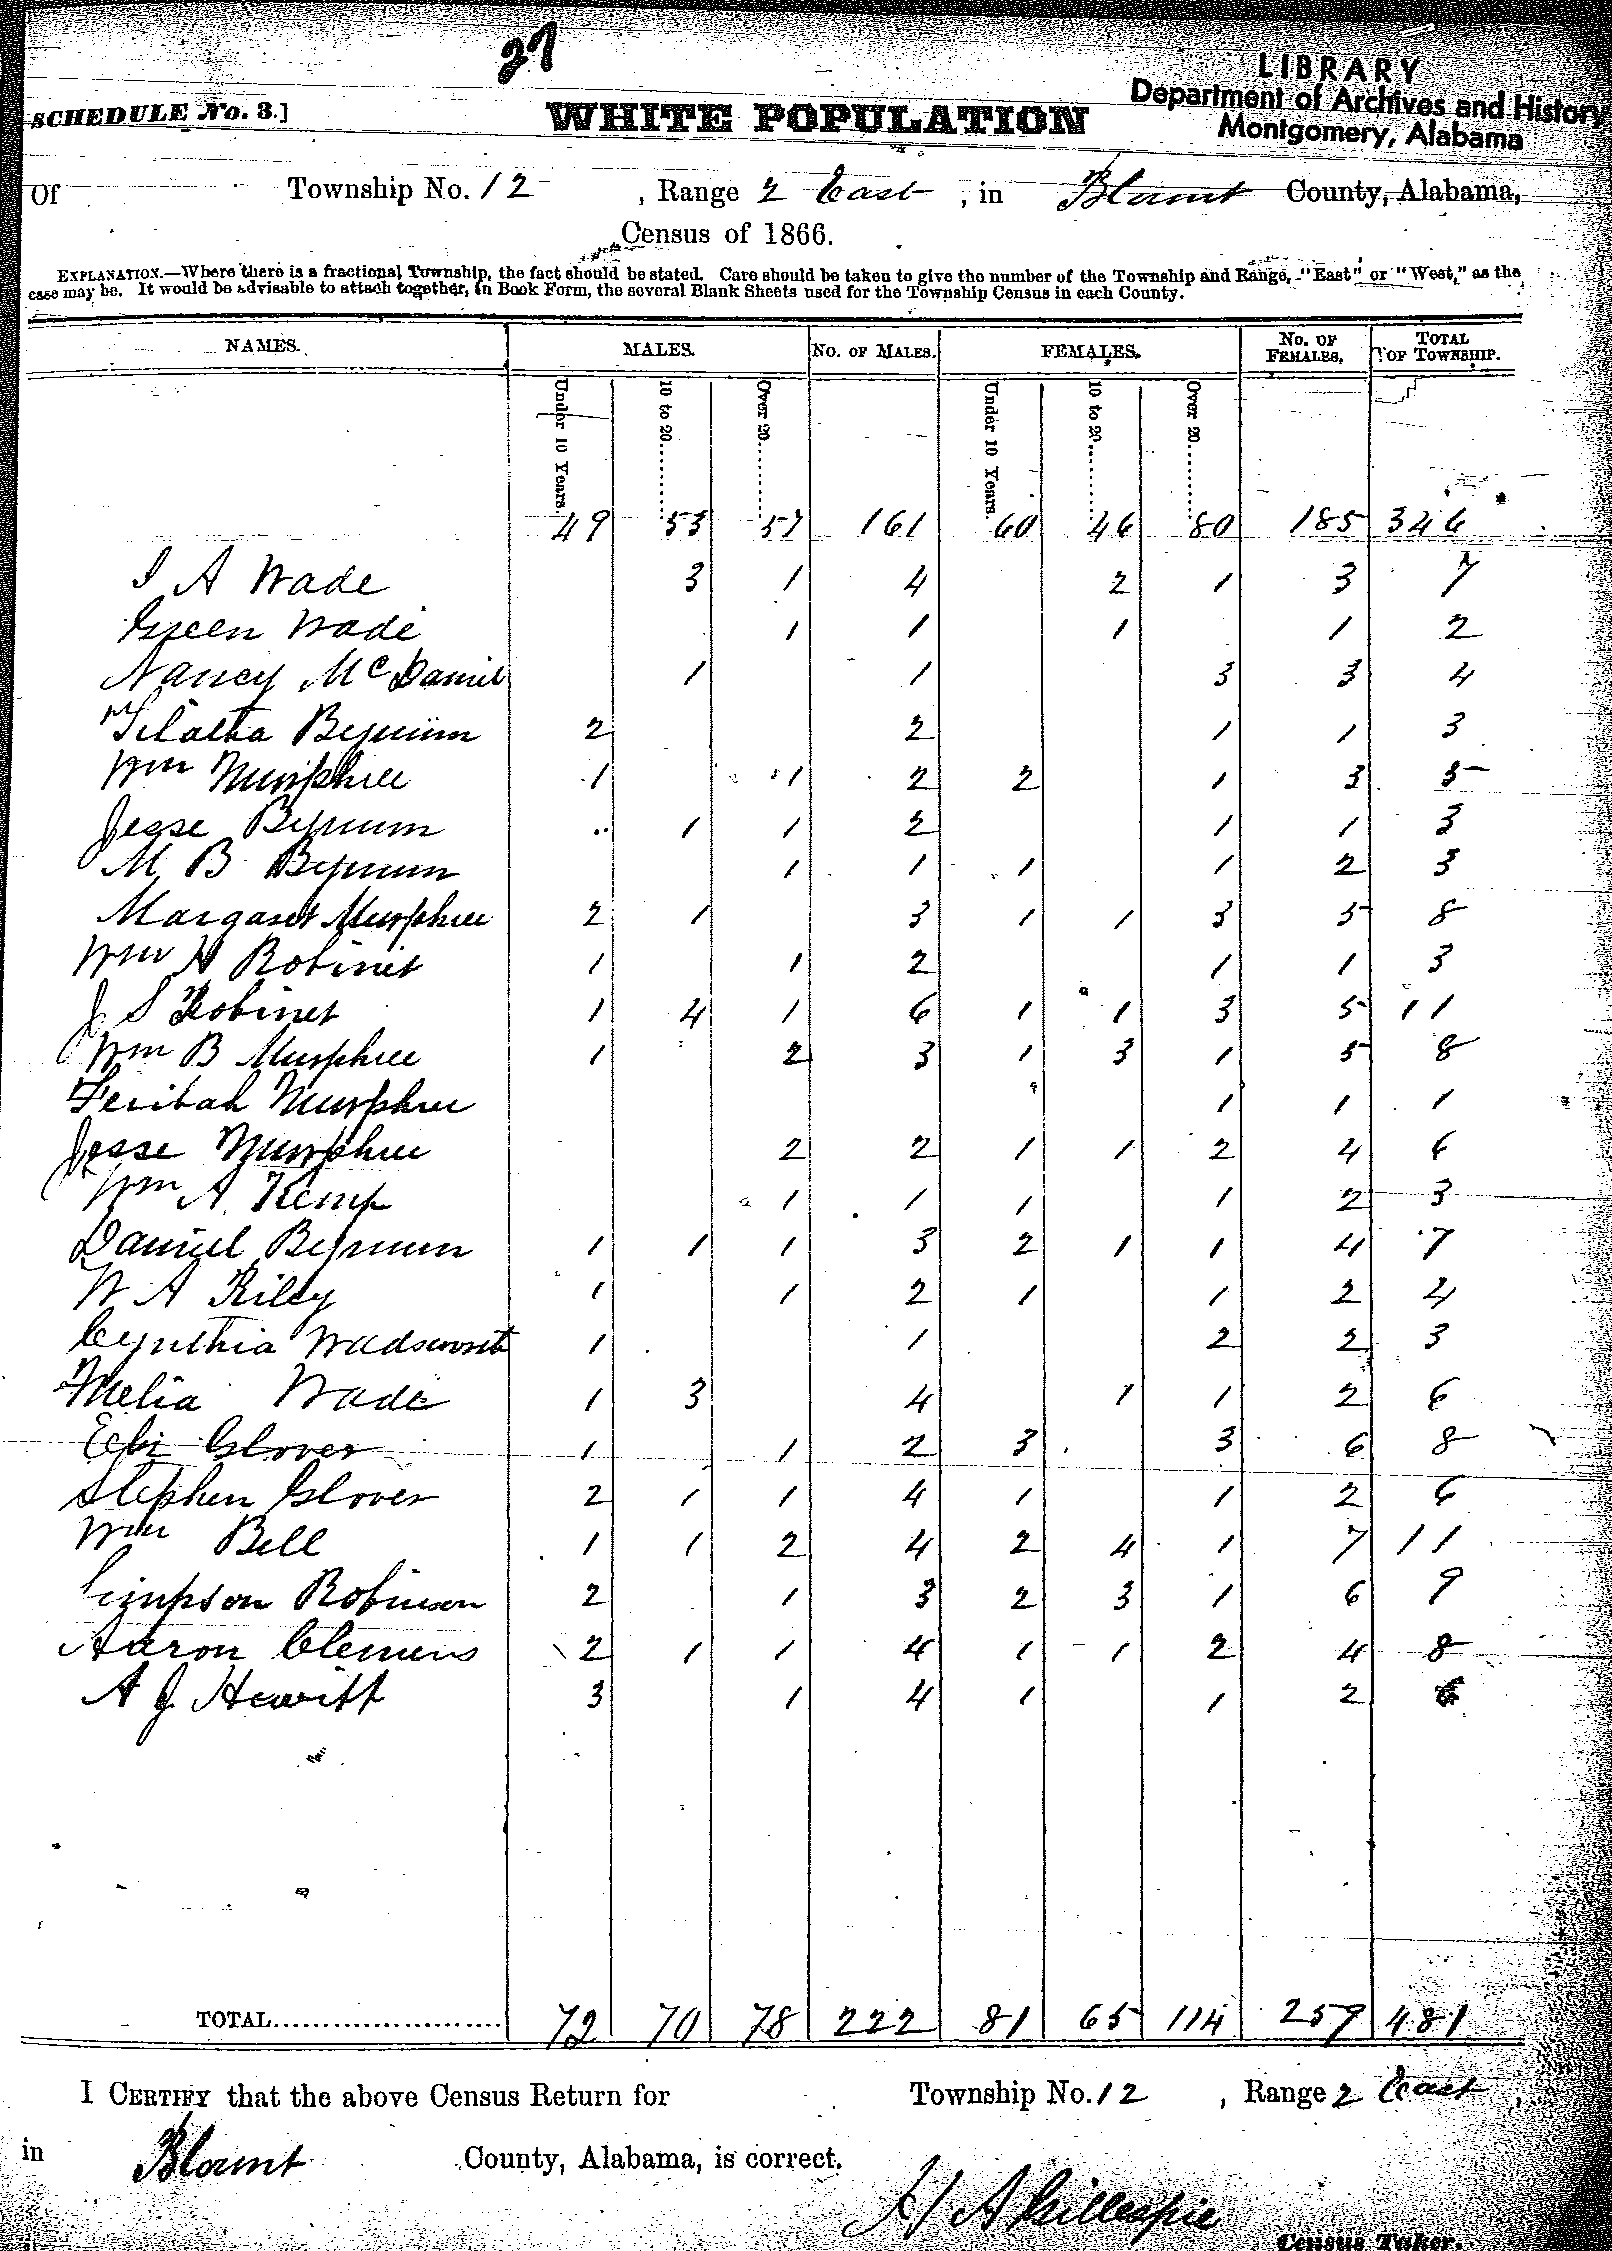 27
LIBRARY
Department of Archives and History
Montgomery, Alabama
SCHEDULE No. 3.]
WHITE POPULATION
Of Township No. 12, Range 2 East, in Blount County, Alabama,
Census of 1866.
EXPLANATION.—Where there is a fractional Township, the fact should be stated. Care should be taken to give the number of the Township and Range, "East" or "West," as the
case may be. It would be advisable to attach together, in Book Form, the several Blank Sheets used for the Township Census in each County.
NAMES. MALES. No. of Males. FEMALES. No. of Females. Total of Township.
Under 10 Years. 10 to 20. Over 20. Under 10 Years. 10 to 20. Over 20.
49 53 57 161 60 46 80 185 346
I A Wade 3 1 4 2 1 3 7
Green Wade 1 1 1 1 2
Nancy McDaniel 1 1 3 3 4
Bynum 2 2 1 1 3
Wm Murphree 1 1 2 2 1 3 5
Jesse Bynum 1 1 2 1 1 3
M B Bynum 1 1 1 1 2 3
Margaret Murphree 2 1 3 1 1 3 5 8
Wm H Robinet 1 1 2 1 1 3
J S Robinet 1 4 1 6 1 1 3 5 11
Wm B Murphree 1 2 3 1 3 1 5 8
Feribah Murphree 1 1 1
Jesse Murphree 2 2 1 1 2 4 6
Wm A Kemp 1 1 1 1 2 3
Daniel Bynum 1 1 1 3 2 1 1 4 7
W A Riley 1 1 2 1 1 2 4
Cynthia Wadsworth 1 1 2 2 3
Melia Wade 1 3 4 1 1 2 6
Glover 1 1 2 3 3 6 8
Stephen Glover 2 1 1 4 1 1 2 6
Wm Bell 1 1 2 4 2 4 1 7 11
Simpson Robinson 2 1 3 2 3 1 6 9
Aaron Clemens 2 1 1 4 1 1 2 4 8
A J Hewitt 3 1 4 1 1 2 6
TOTAL 72 70 78 222 81 65 114 259 481
I CERTIFY that the above Census Return for Township No. 12, Range 2 East,
in Blount County, Alabama, is correct.
H A Gillespie
Census Taker.